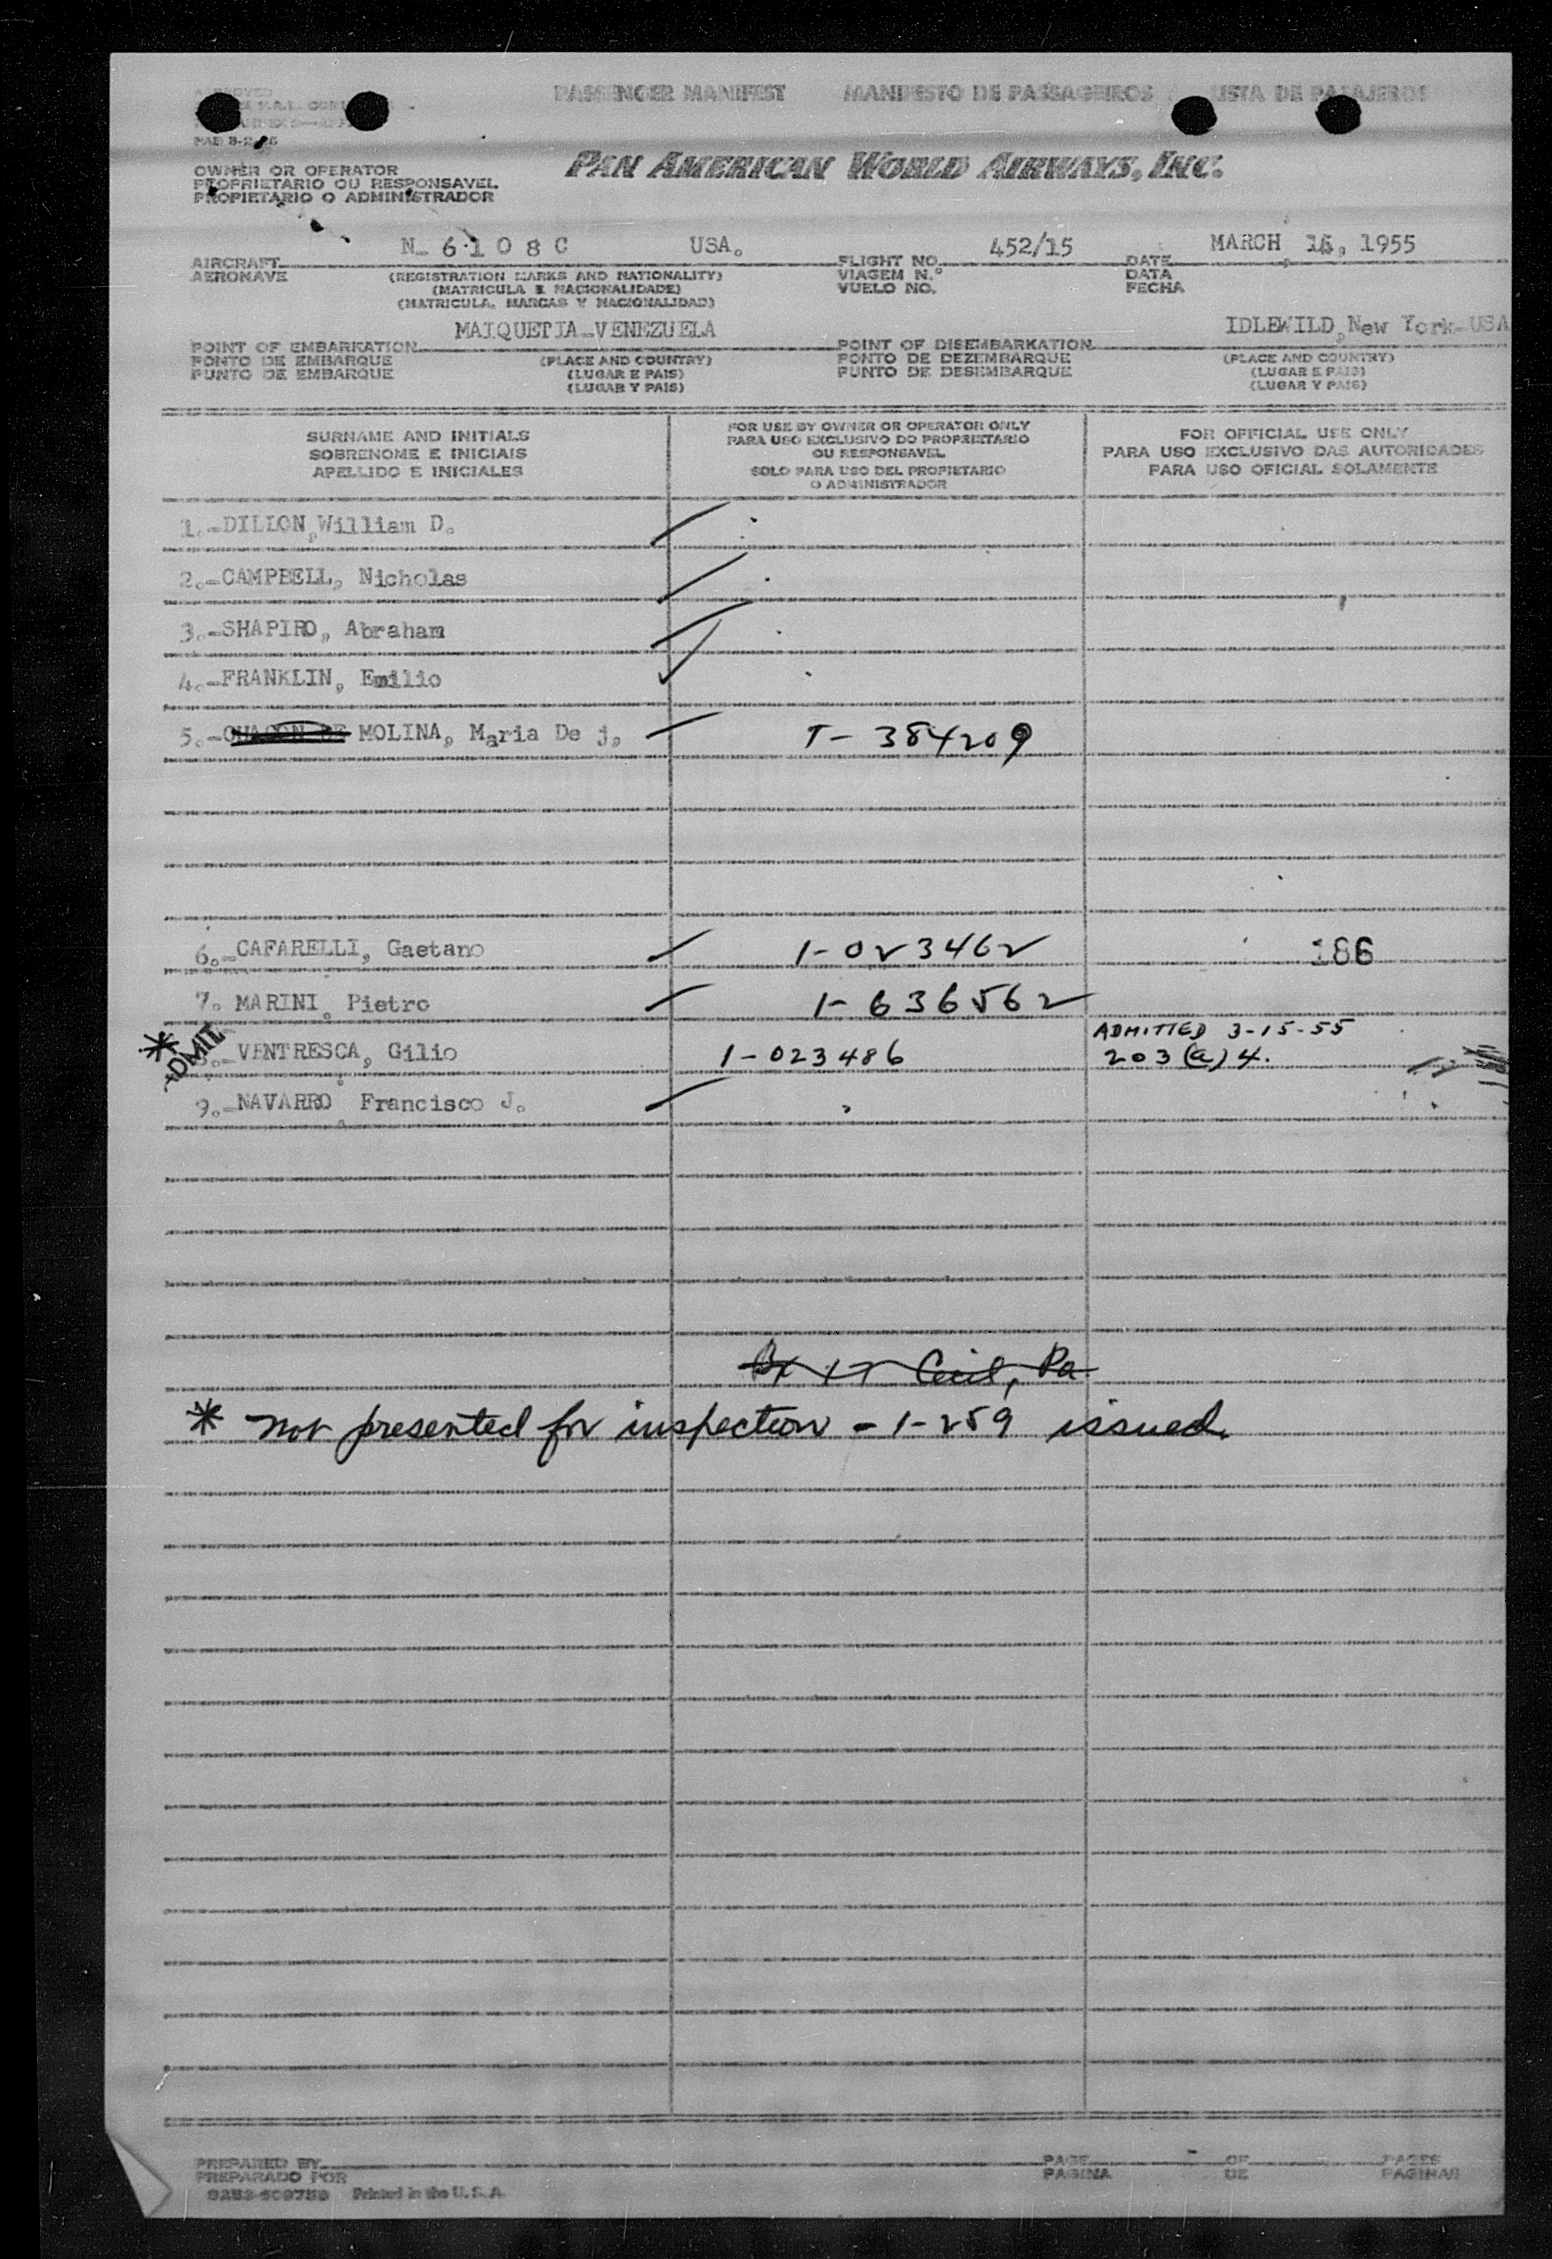 PASSENGER MANIFEST MANIFESTO DE PASSAGEIROS LISTA DE PASAJEROS
PAN AMERICAN WORLD AIRWAYS, INC.
OWNER OR OPERATOR
PROPRIETARIO OU RESPONSAVEL
PROPIETARIO O ADMINISTRADOR
N- 6108C USA. 452/15 MARCH 15, 1955
AIRCRAFT FLIGHT NO. DATE
AERONAVE (REGISTRATION MARKS AND NATIONALITY) VIAGEM N.º DATA
(MATRICULA E NACIONALIDADE) VUELO NO. FECHA
(MATRICULA, MARCAS Y NACIONALIDAD)
MAIQUETIA-VENEZUELA IDLEWILD, New York-USA
POINT OF EMBARKATION POINT OF DISEMBARKATION
PONTO DE EMBARQUE (PLACE AND COUNTRY) PONTO DE DEZEMBARQUE (PLACE AND COUNTRY)
PUNTO DE EMBARQUE (LUGAR E PAIS) PUNTO DE DESEMBARQUE (LUGAR E PAIS)
(LUGAR Y PAIS) (LUGAR Y PAIS)
SURNAME AND INITIALS
SOBRENOME E INICIAIS
APELLIDO E INICIALES
FOR USE BY OWNER OR OPERATOR ONLY
PARA USO EXCLUSIVO DO PROPRIETARIO
OU RESPONSAVEL
SOLO PARA USO DEL PROPIETARIO
O ADMINISTRADOR
FOR OFFICIAL USE ONLY
PARA USO EXCLUSIVO DAS AUTORIDADES
PARA USO OFICIAL SOLAMENTE
1.-DILLON, William D.
2.-CAMPBELL, Nicholas
3.-SHAPIRO, Abraham
4.-FRANKLIN, Emilio
5.- MOLINA, Maria De j. T- 384209
6.-CAFARELLI, Gaetano 1-023462 186
7. MARINI, Pietro 1-636562
ADMITTED 3-15-55
* OMIT VENTRESCA, Gilio 1-023486 203(a)4.
9.-NAVARRO, Francisco J.
Cecil, Pa
* not presented for inspection - 1-259 issued.
PREPARED BY PAGE OF PAGES
PREPARADO POR PAGINA DE PAGINAS
Printed in the U.S.A.